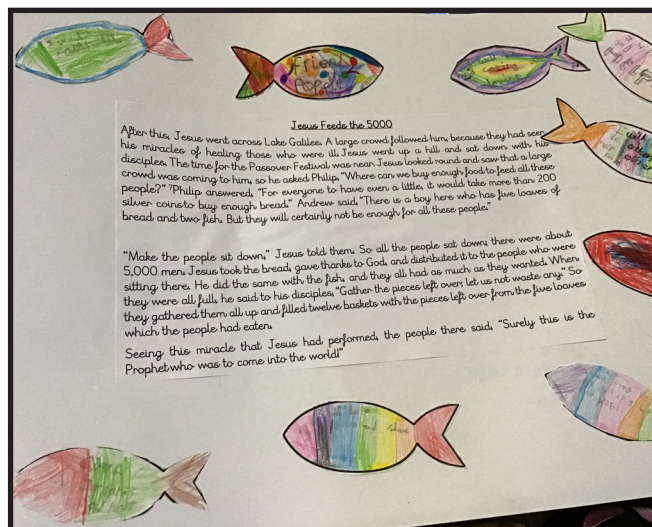 Friendly
People
Jesus Feeds the 5000
After this, Jesus went across Lake Galilee. A large crowd followed him, because they had seen
his miracles of healing those who were ill. Jesus went up a hill and sat down with his
disciples. The time for the Passover Festival was near. Jesus looked round and saw that a large
crowd was coming to him, so he asked Philip, "Where can we buy enough food to feed all these
people?" ⁷Philip answered, "For everyone to have even a little, it would take more than 200
silver coinsto buy enough bread." Andrew said, "There is a boy here who has five loaves of
bread and two fish. But they will certainly not be enough for all these people."
"Make the people sit down," Jesus told them. So all the people sat down; there were about
5,000 men. Jesus took the bread, gave thanks to God, and distributed it to the people who were
sitting there. He did the same with the fish, and they all had as much as they wanted. When
they were all full, he said to his disciples, "Gather the pieces left over; let us not waste any." So
they gathered them all up and filled twelve baskets with the pieces left over from the five loaves
which the people had eaten.
Seeing this miracle that Jesus had performed, the people there said, "Surely this is the
Prophet who was to come into the world!"
and share